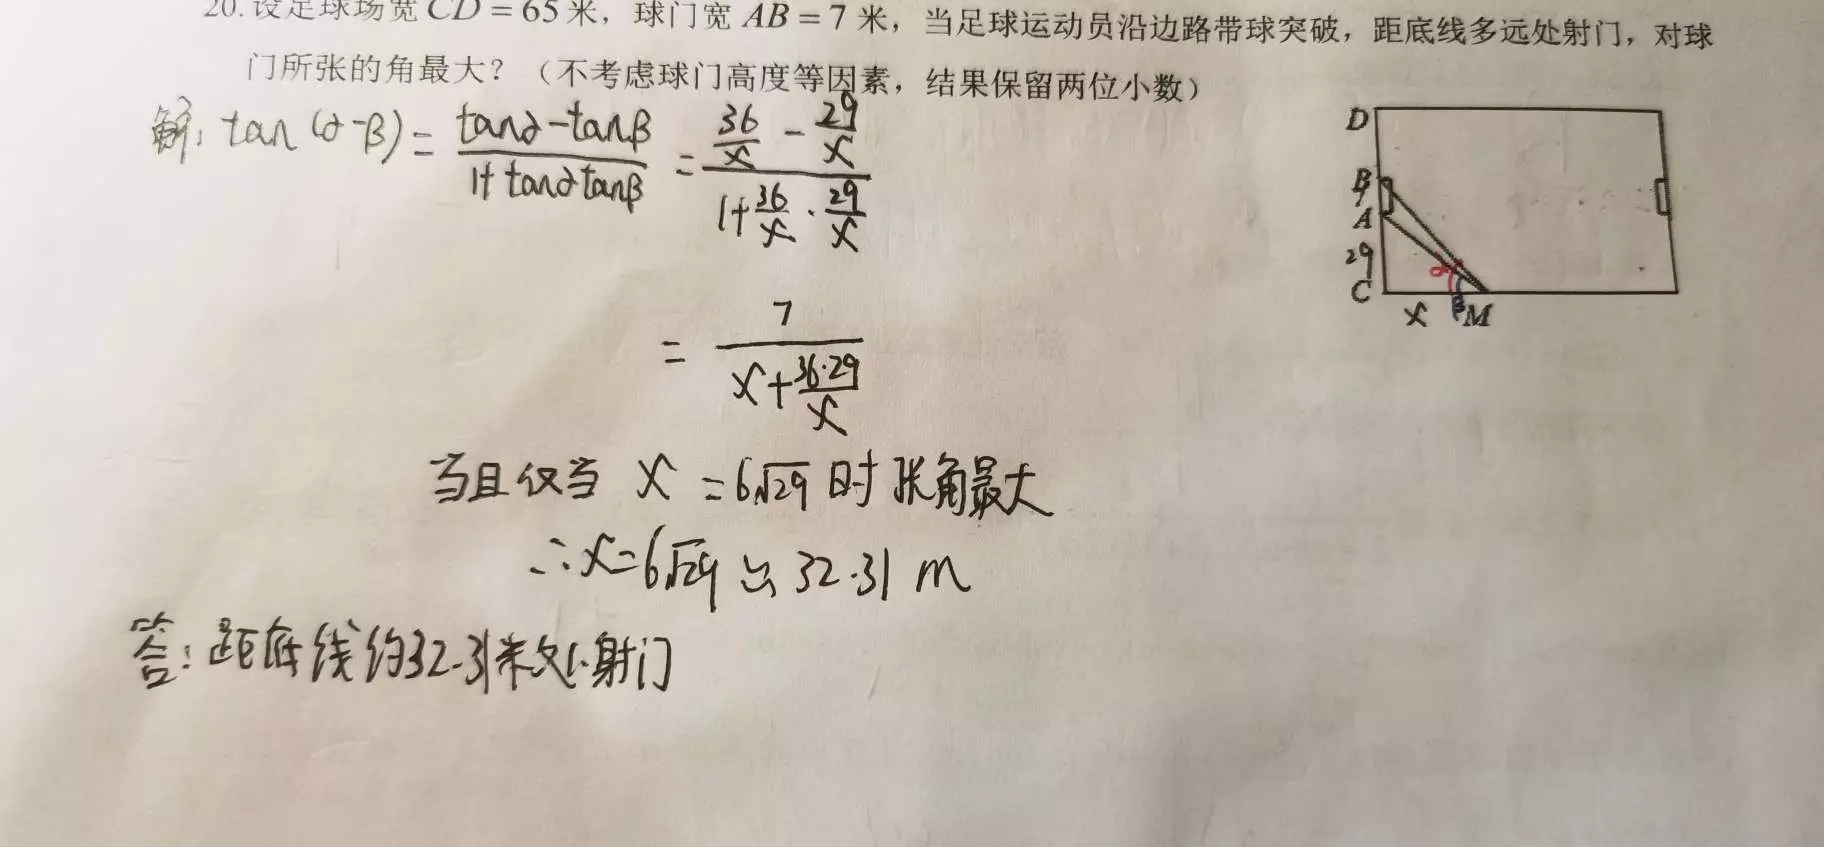 20. 设足球场宽 CD = 65 米，球门宽 AB = 7 米，当足球运动员沿边路带球突破，距底线多远处射门，对球
门所张的角最大？（不考虑球门高度等因素，结果保留两位小数）
解: tan(α-β) = (tanα-tanβ)/(1+tanαtanβ) = (36/x - 29/x)/(1+36/x·29/x)
= 7/(x+36·29/x)
当且仅当 x = 6√29 时 张角最大
∴x=6√29 ≌ 32.31 m
答: 距底线约32.31米处射门
D
B
7
A
29
C
x
α
β
M